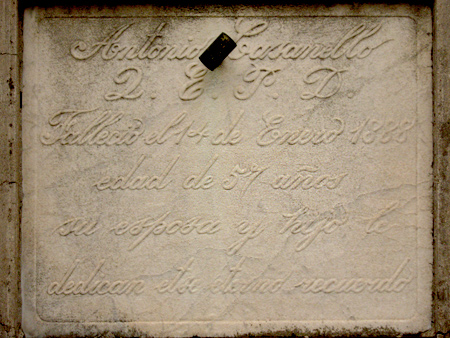 Antonio Casanello
Q. E. P. D.
Falleció el 14 de Enero 1888
edad de 57 años
su esposa y hijo le
dedican este eterno recuerdo